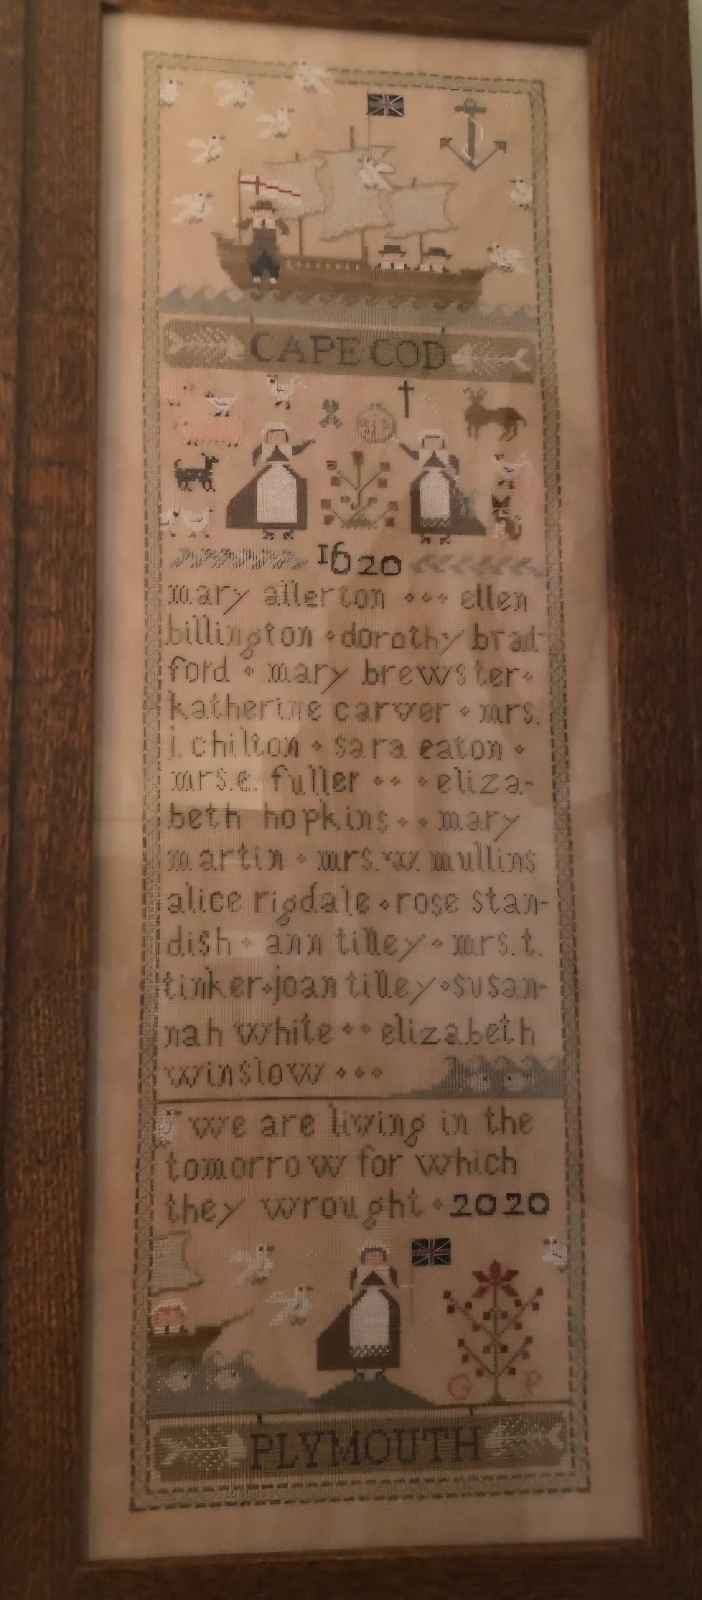 CAPE COD
1620
mary allerton ellen
billington dorothy brad-
ford mary brewster
katherine carver mrs.
j. chilton sara eaton
mrs. e. fuller eliza-
beth hopkins mary
martin mrs. w. mullins
alice rigdale rose stan-
dish ann tilley mrs. t.
tinker joan tilley susan-
nah white elizabeth
winslow
we are living in the
tomorrow for which
they wrought 2020
G P
PLYMOUTH